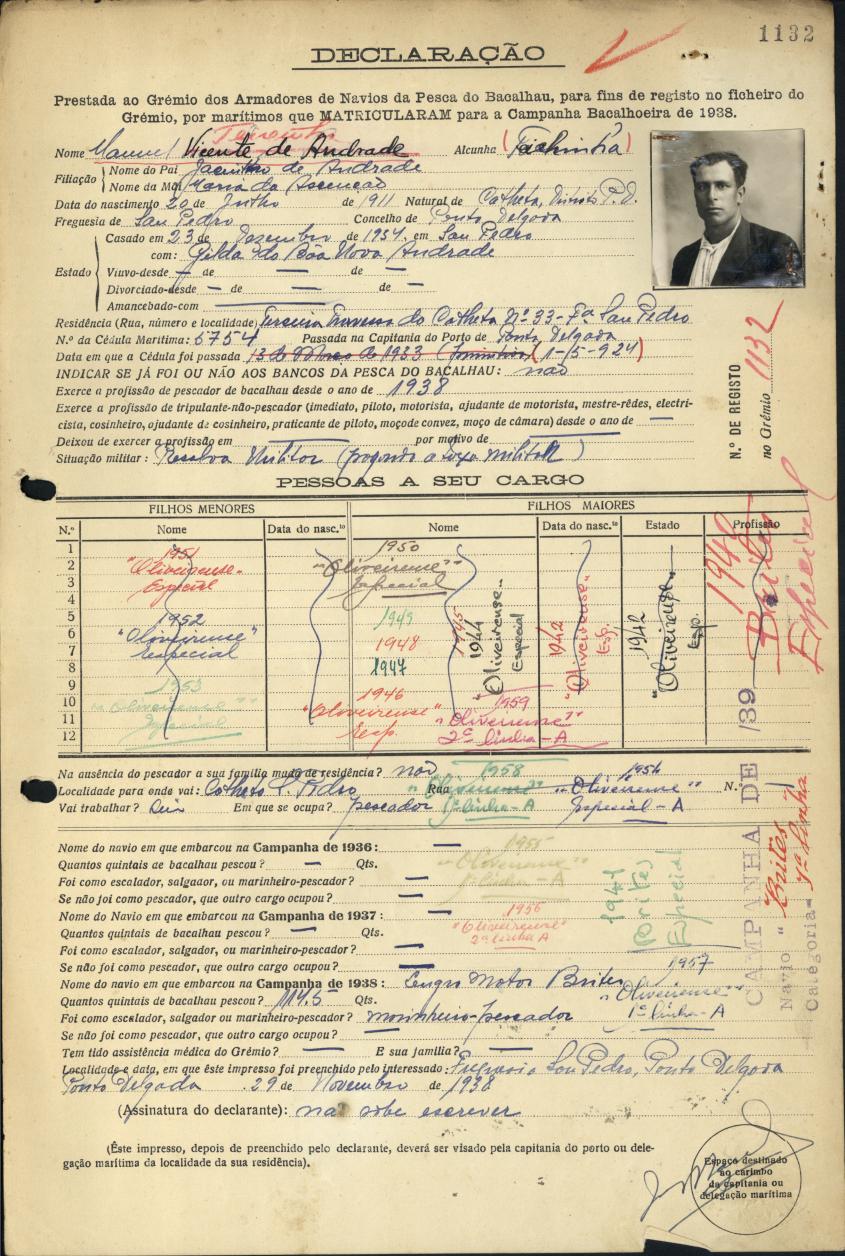 1132
DECLARAÇÃO
Prestada ao Grémio dos Armadores de Navios da Pesca do Bacalhau, para fins de registo no ficheiro do
Grémio, por marítimos que MATRICULARAM para a Campanha Bacalhoeira de 1938.
Nome Manuel Vicente de Andrade Alcunha
Filiação Nome do Pai Jacintho de Andrade
Nome da Mãi Maria da Ascenção
Data do nascimento 20 de Junho de 1911 Natural de Calheta, P. D.
Freguesia de San Pedro Concelho de Ponta Delgada
Estado Casado em 23 de Dezembro de 1934, em San Pedro
com: Gilda da Bôa Nova Andrade
Viuvo-desde — de — de —
Divorciado-desde — de — de —
Amancebado-com —
Residência (Rua, número e localidade) Terceira Travessa da Calheta Nº 33 - San Pedro
N.º da Cédula Marítima: 5754 Passada na Capitania do Porto de Ponta Delgada
Data em que a Cédula foi passada 13 de Março de 1933
INDICAR SE JÁ FOI OU NÃO AOS BANCOS DA PESCA DO BACALHAU: não
Exerce a profissão de pescador de bacalhau desde o ano de 1938
Exerce a profissão de tripulante-não-pescador (imediato, piloto, motorista, ajudante de motorista, mestre-rêdes, electri-
cista, cosinheiro, ajudante de cosinheiro, praticante de piloto, moço de convez, moço de câmara) desde o ano de —
Deixou de exercer a profissão em — por motivo de —
Situação militar: Reserva Militar (pagando a taxa militar)
N.º DE REGISTO
no Grémio 1132
PESSOAS A SEU CARGO
FILHOS MENORES FILHOS MAIORES
N.º Nome Data do nasc.to Nome Data do nasc.to Estado Profissão
1 1951 1950
2 "Oliveirense" "Oliveirense"
3 Especial Especial
4
5 1952 1949
6 "Oliveirense" 1948
7 Especial
8 1947
9 1953 1946
10 "Oliveirense" "Oliveirense" 1959
11 Especial Esp. "Oliveirense"
12 2ª linha - A
1945
1944 "Oliveirense" Especial
1942 "Oliveirense" Esp.
1942 "Oliveirense" Esp.
1940 Brites Especial
Na ausência do pescador a sua família muda de residência? não
Localidade para onde vai: Calheta S. Pedro Rua N.º
Vai trabalhar? Em que se ocupa? pescador
1958 "Oliveirense" 1ª linha - A
1954 "Oliveirense" Especial - A
Nome do navio em que embarcou na Campanha de 1936: —
Quantos quintais de bacalhau pescou? — Qts.
Foi como escalador, salgador, ou marinheiro-pescador? —
Se não foi como pescador, que outro cargo ocupou? —
Nome do Navio em que embarcou na Campanha de 1937: —
Quantos quintais de bacalhau pescou? — Qts.
Foi como escalador, salgador, ou marinheiro-pescador? —
Se não foi como pescador, que outro cargo ocupou? —
Nome do navio em que embarcou na Campanha de 1938: Lugre Motor Brites
Quantos quintais de bacalhau pescou? 114,5 Qts.
Foi como escalador, salgador ou marinheiro-pescador? marinheiro-pescador
Se não foi como pescador, que outro cargo ocupou? —
Tem tido assistência médica do Grémio? — E sua família? —
1955 "Oliveirense" 1ª linha - A
1956 "Oliveirense" 2ª linha A
1941 Brites Especial
1957 "Oliveirense" 1ª linha - A
CAMPANHA DE 1939
Navio "Brites"
Categoria - 1ª linha
Localidade e data, em que êste impresso foi preenchido pelo interessado: Freguesia San Pedro, Ponta Delgada
Ponta Delgada 29 de Novembro de 1938
(Assinatura do declarante): não sabe escrever
(Êste impresso, depois de preenchido pelo declarante, deverá ser visado pela capitania do porto ou dele-
gação marítima da localidade da sua residência).
Espaço destinado
ao carimbo
da capitania ou
delegação marítima